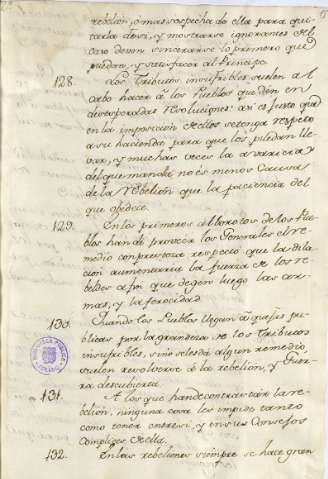 rebelión, o mas sospecha de ella para qui-
tarla de si, y mostrarse ignorantes del
caso deven sincerarse lo primero que
puedan, y satisfacer al Principe.
128. Los Tributos insufribles suelen al
cabo hacer a los Pueblos que den en
desesperadas revoluciones: asi es justo que
en la imposición de ellos se tenga respeto
a su hacienda para que los puedan lle-
var, y muchas veces la avaricia
del que manda no es menos causa
de la Rebelión que la paciencia del
que obedece.
129. En los primeros alborotos de los Pue-
blos han de proveer los Generales el re-
medio con presteza respecto que la dila-
ción aumentaria la fuerza de los re-
beldes a fin que dejen luego las ar-
mas, y la ferocidad.
130. Quando los Pueblos llegan a quejas pu-
blicas por la grandeza de los Tributos
insufribles, sino se les dá algun remedio
suelen resolverse a la rebelión, y Guer-
ra descubierta.
131. A los que han de contrastar la re-
belión, ninguna cosa les impide tanto
como tener entre si, y en sus Consejos
Complices de ella.
132. En las rebeliones siempre se hace gran
BIBLIOTECA PUBLICA